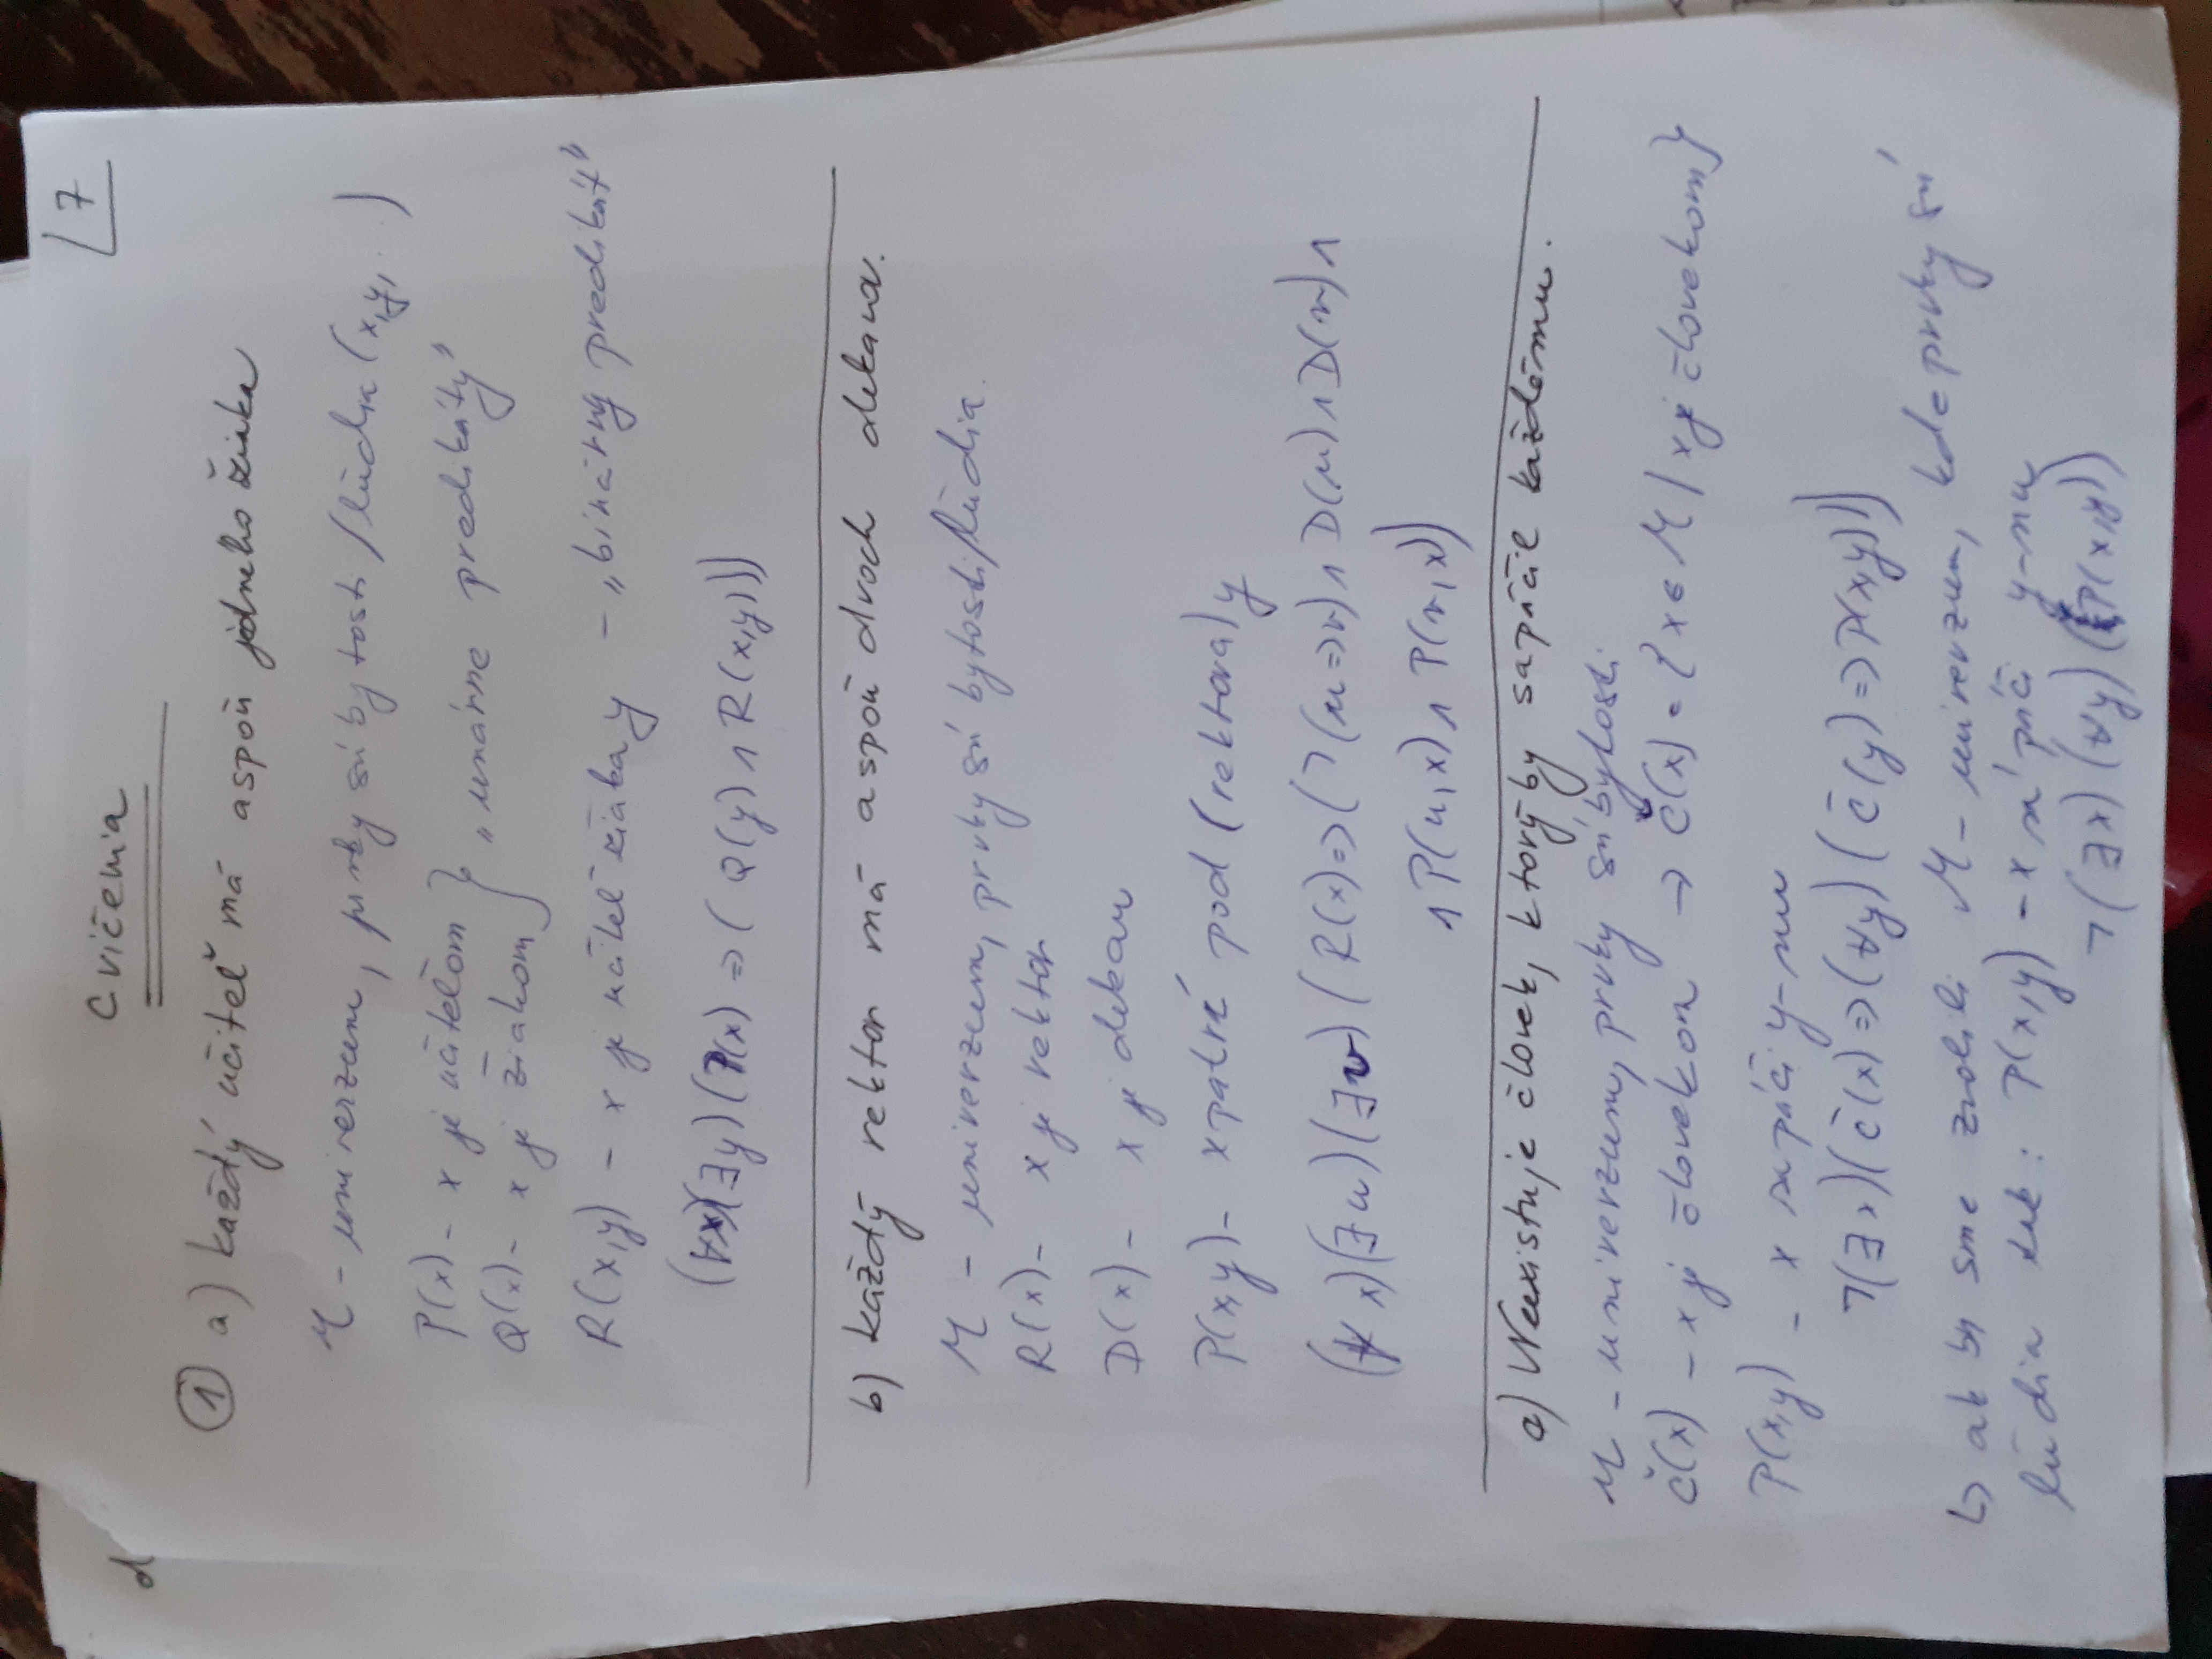 Cvičenia
7
① a) každý učiteľ má aspoň jedneho žiaka
M - univerzum, prvky sú bytosti / ľudia (x, y, ...)
P(x) - x je učiteľom
Q(x) - x je žiakom } „unárne predikáty"
R(x,y) - x je učiteľ žiaka y - „binárny predikát"
(∀x)(∃y)(P(x) => (Q(y) ∧ R(x,y)))
b) každý rektor má aspoň dvoch dekanov.
M - univerzum, prvky sú bytosti/ľudia.
R(x) - x je rektor
D(x) - x je dekan
P(x,y) - x patrí pod (rektora) y
(∀x)(∃u)(∃v)(R(x) => (¬(u=>v) ∧ D(u) ∧ D(v) ∧
∧ P(u,x) ∧ P(v,x)))
a) Neexistuje človek, ktorý by sapáčil každému.
M - univerzum, prvky sú bytosti
Č(x) - x je človekom → Č(x) = {x ∈ M | x je človekom}
P(x,y) - x sa páči y-nu
¬(∃x)(Č(x) => (∀y)(Č(y) => P(x,y)))
↳ ak by sme zvolili M - univerzum, kde prvky sú
ľudia tak: P(x,y) - x sa páči y-nu
¬(∃x)(∀y)(P(x,y))
d